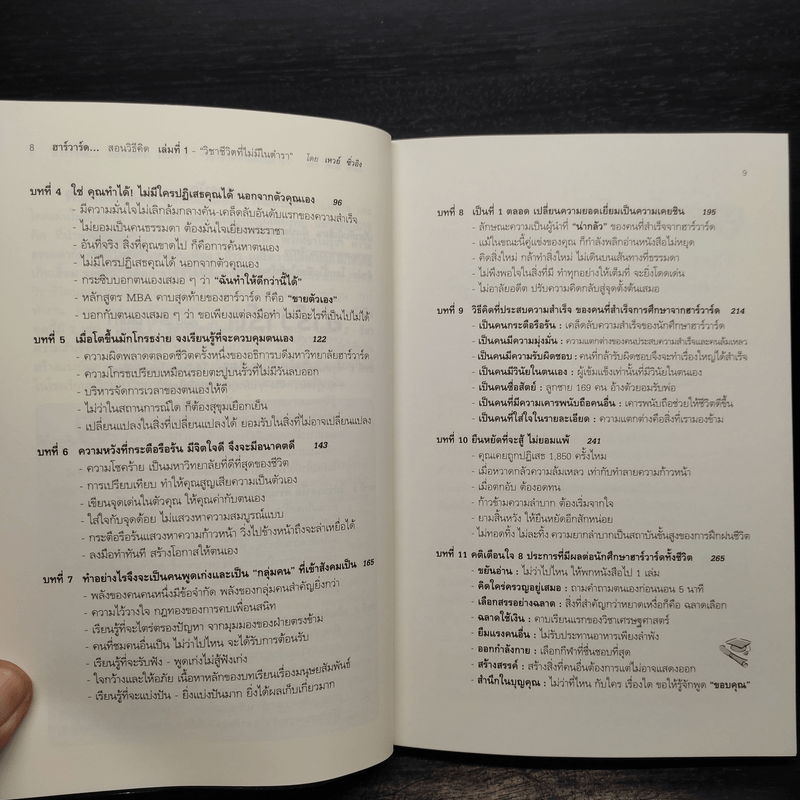 8 ฮาร์วาร์ด... สอนวิธีคิด เล่มที่ 1 - "วิชาชีวิตที่ไม่มีในตำรา" โดย เหวย์ ซิ่วอิง
บทที่ 4 ใช่ คุณทำได้! ไม่มีใครปฏิเสธคุณได้ นอกจากตัวคุณเอง 96
- มีความมั่นใจไม่เลิกล้มกลางคัน-เคล็ดลับอันดับแรกของความสำเร็จ
- ไม่ยอมเป็นคนธรรมดา ต้องมั่นใจเยี่ยงพระราชา
- อันที่จริง สิ่งที่คุณขาดไป ก็คือการค้นหาตนเอง
- ไม่มีใครปฏิเสธคุณได้ นอกจากตัวคุณเอง
- กระซิบบอกตนเองเสมอ ๆ ว่า "ฉันทำให้ดีกว่านี้ได้"
- หลักสูตร MBA คาบสุดท้ายของฮาร์วาร์ด ก็คือ "ขายตัวเอง"
- บอกกับตนเองเสมอ ๆ ว่า ขอเพียงแต่ลงมือทำ ไม่มีอะไรที่เป็นไปไม่ได้
บทที่ 5 เมื่อโตขึ้นมักโกรธง่าย จงเรียนรู้ที่จะควบคุมตนเอง 122
- ความผิดพลาดตลอดชีวิตครั้งหนึ่งของอธิการบดีมหาวิทยาลัยฮาร์วาร์ด
- ความโกรธเปรียบเหมือนรอยตะปูบนรั้วที่ไม่มีวันลบออก
- บริหารจัดการเวลาของตนเองให้ดี
- ไม่ว่าในสถานการณ์ใด ก็ต้องสุขุมเยือกเย็น
- เปลี่ยนแปลงในสิ่งที่เปลี่ยนแปลงได้ ยอมรับในสิ่งที่ไม่อาจเปลี่ยนแปลง
บทที่ 6 ความหวังที่กระตือรือร้น มีจิตใจดี จึงจะมีอนาคตดี 143
- ความโชคร้าย เป็นมหาวิทยาลัยที่ดีที่สุดของชีวิต
- การเปรียบเทียบ ทำให้คุณสูญเสียความเป็นตัวเอง
- เขียนจุดเด่นในตัวคุณ ให้คุณค่ากับตนเอง
- ใส่ใจกับจุดด้อย ไม่แสวงหาความสมบูรณ์แบบ
- กระตือรือร้นแสวงหาความก้าวหน้า วิ่งไปข้างหน้าถึงจะล่าเหยื่อได้
- ลงมือทำทันที สร้างโอกาสให้ตนเอง
บทที่ 7 ทำอย่างไรจึงจะเป็นคนพูดเก่งและเป็น "กลุ่มคน" ที่เข้าสังคมเป็น 165
- พลังของคนคนหนึ่งมีข้อจำกัด พลังของกลุ่มคนสำคัญยิ่งกว่า
- ความไว้วางใจ กฎทองของการคบเพื่อนสนิท
- เรียนรู้ที่จะไตร่ตรองปัญหา จากมุมมองของฝ่ายตรงข้าม
- คนที่ชมคนอื่นเป็น ไม่ว่าไปไหน จะได้รับการต้อนรับ
- เรียนรู้ที่จะรับฟัง - พูดเก่งไม่สู้ฟังเก่ง
- ใจกว้างและให้อภัย เนื้อหาหลักของบทเรียนเรื่องมนุษยสัมพันธ์
- เรียนรู้ที่จะแบ่งปัน - ยิ่งแบ่งปันมาก ยิ่งได้ผลเก็บเกี่ยวมาก
9
บทที่ 8 เป็นที่ 1 ตลอด เปลี่ยนความยอดเยี่ยมเป็นความเคยชิน 195
- ลักษณะความเป็นผู้นำที่ "น่ากลัว" ของคนที่สำเร็จจากฮาร์วาร์ด
- แม้ในขณะนี้คู่แข่งของคุณ ก็กำลังพลิกอ่านหนังสือไม่หยุด
- คิดสิ่งใหม่ กล้าทำสิ่งใหม่ ไม่เดินบนเส้นทางที่ธรรมดา
- ไม่พึงพอใจในสิ่งที่มี ทำทุกอย่างให้เต็มที่ จะยิ่งโดดเด่น
- ไม่อาลัยอดีต ปรับความคิดกลับสู่จุดตั้งต้นเสมอ
บทที่ 9 วิธีคิดที่ประสบความสำเร็จ ของคนที่สำเร็จการศึกษาจากฮาร์วาร์ด 214
- เป็นคนกระตือรือร้น : เคล็ดลับความสำเร็จของนักศึกษาฮาร์วาร์ด
- เป็นคนมีความมุ่งมั่น : ความแตกต่างของคนประสบความสำเร็จและคนล้มเหลว
- เป็นคนมีความรับผิดชอบ : คนที่กล้ารับผิดชอบจึงจะทำเรื่องใหญ่ได้สำเร็จ
- เป็นคนมีวินัยในตนเอง : ผู้เข้มแข็งเท่านั้นที่มีวินัยในตนเอง
- เป็นคนซื่อสัตย์ : ลูกชาย 169 คน อ้างตัวยอมรับพ่อ
- เป็นคนที่มีความเคารพนับถือคนอื่น : เคารพนับถือผู้อื่นช่วยให้ชีวิตดีขึ้น
- เป็นคนที่ใส่ใจในรายละเอียด : ความแตกต่างคือสิ่งที่เรามองข้าม
บทที่ 10 ยืนหยัดที่จะสู้ ไม่ยอมแพ้ 241
- คุณเคยถูกปฏิเสธ 1,850 ครั้งไหม
- เมื่อหวาดกลัวความล้มเหลว เท่ากับทำลายความก้าวหน้า
- เมื่อตกอับ ต้องอดทน
- ก้าวข้ามความลำบาก ต้องเริ่มจากใจ
- ยามสิ้นหวัง ให้ยืนหยัดอีกสักหน่อย
- ไม่ทอดทิ้ง ไม่ละทิ้ง ความยากลำบากเป็นสถาบันชั้นสูงของการฝึกฝนชีวิต
บทที่ 11 คติเตือนใจ 8 ประการที่มีผลต่อนักศึกษาฮาร์วาร์ดทั้งชีวิต 265
- ขยันอ่าน : ไม่ว่าไปไหน ให้พกหนังสือไป 1 เล่ม
- คิดใคร่ครวญอยู่เสมอ : ถามคำถามตนเองก่อนนอน 5 นาที
- เลือกสรรอย่างฉลาด : สิ่งที่สำคัญกว่าหยาดเหงื่อก็คือ ฉลาดเลือก
- ฉลาดใช้เงิน : คาบเรียนแรกของวิชาเศรษฐศาสตร์
- ยืมแรงคนอื่น : ไม่รับประทานอาหารเพียงลำพัง
- ออกกำลังกาย : เลือกกีฬาที่ชื่นชอบที่สุด
- สร้างสรรค์ : สร้างสิ่งที่คนอื่นต้องการแต่ไม่อาจแสดงออก
- สำนึกในบุญคุณ : ไม่ว่าที่ไหน กับใคร เรื่องใด ขอให้รู้จักพูด "ขอบคุณ"